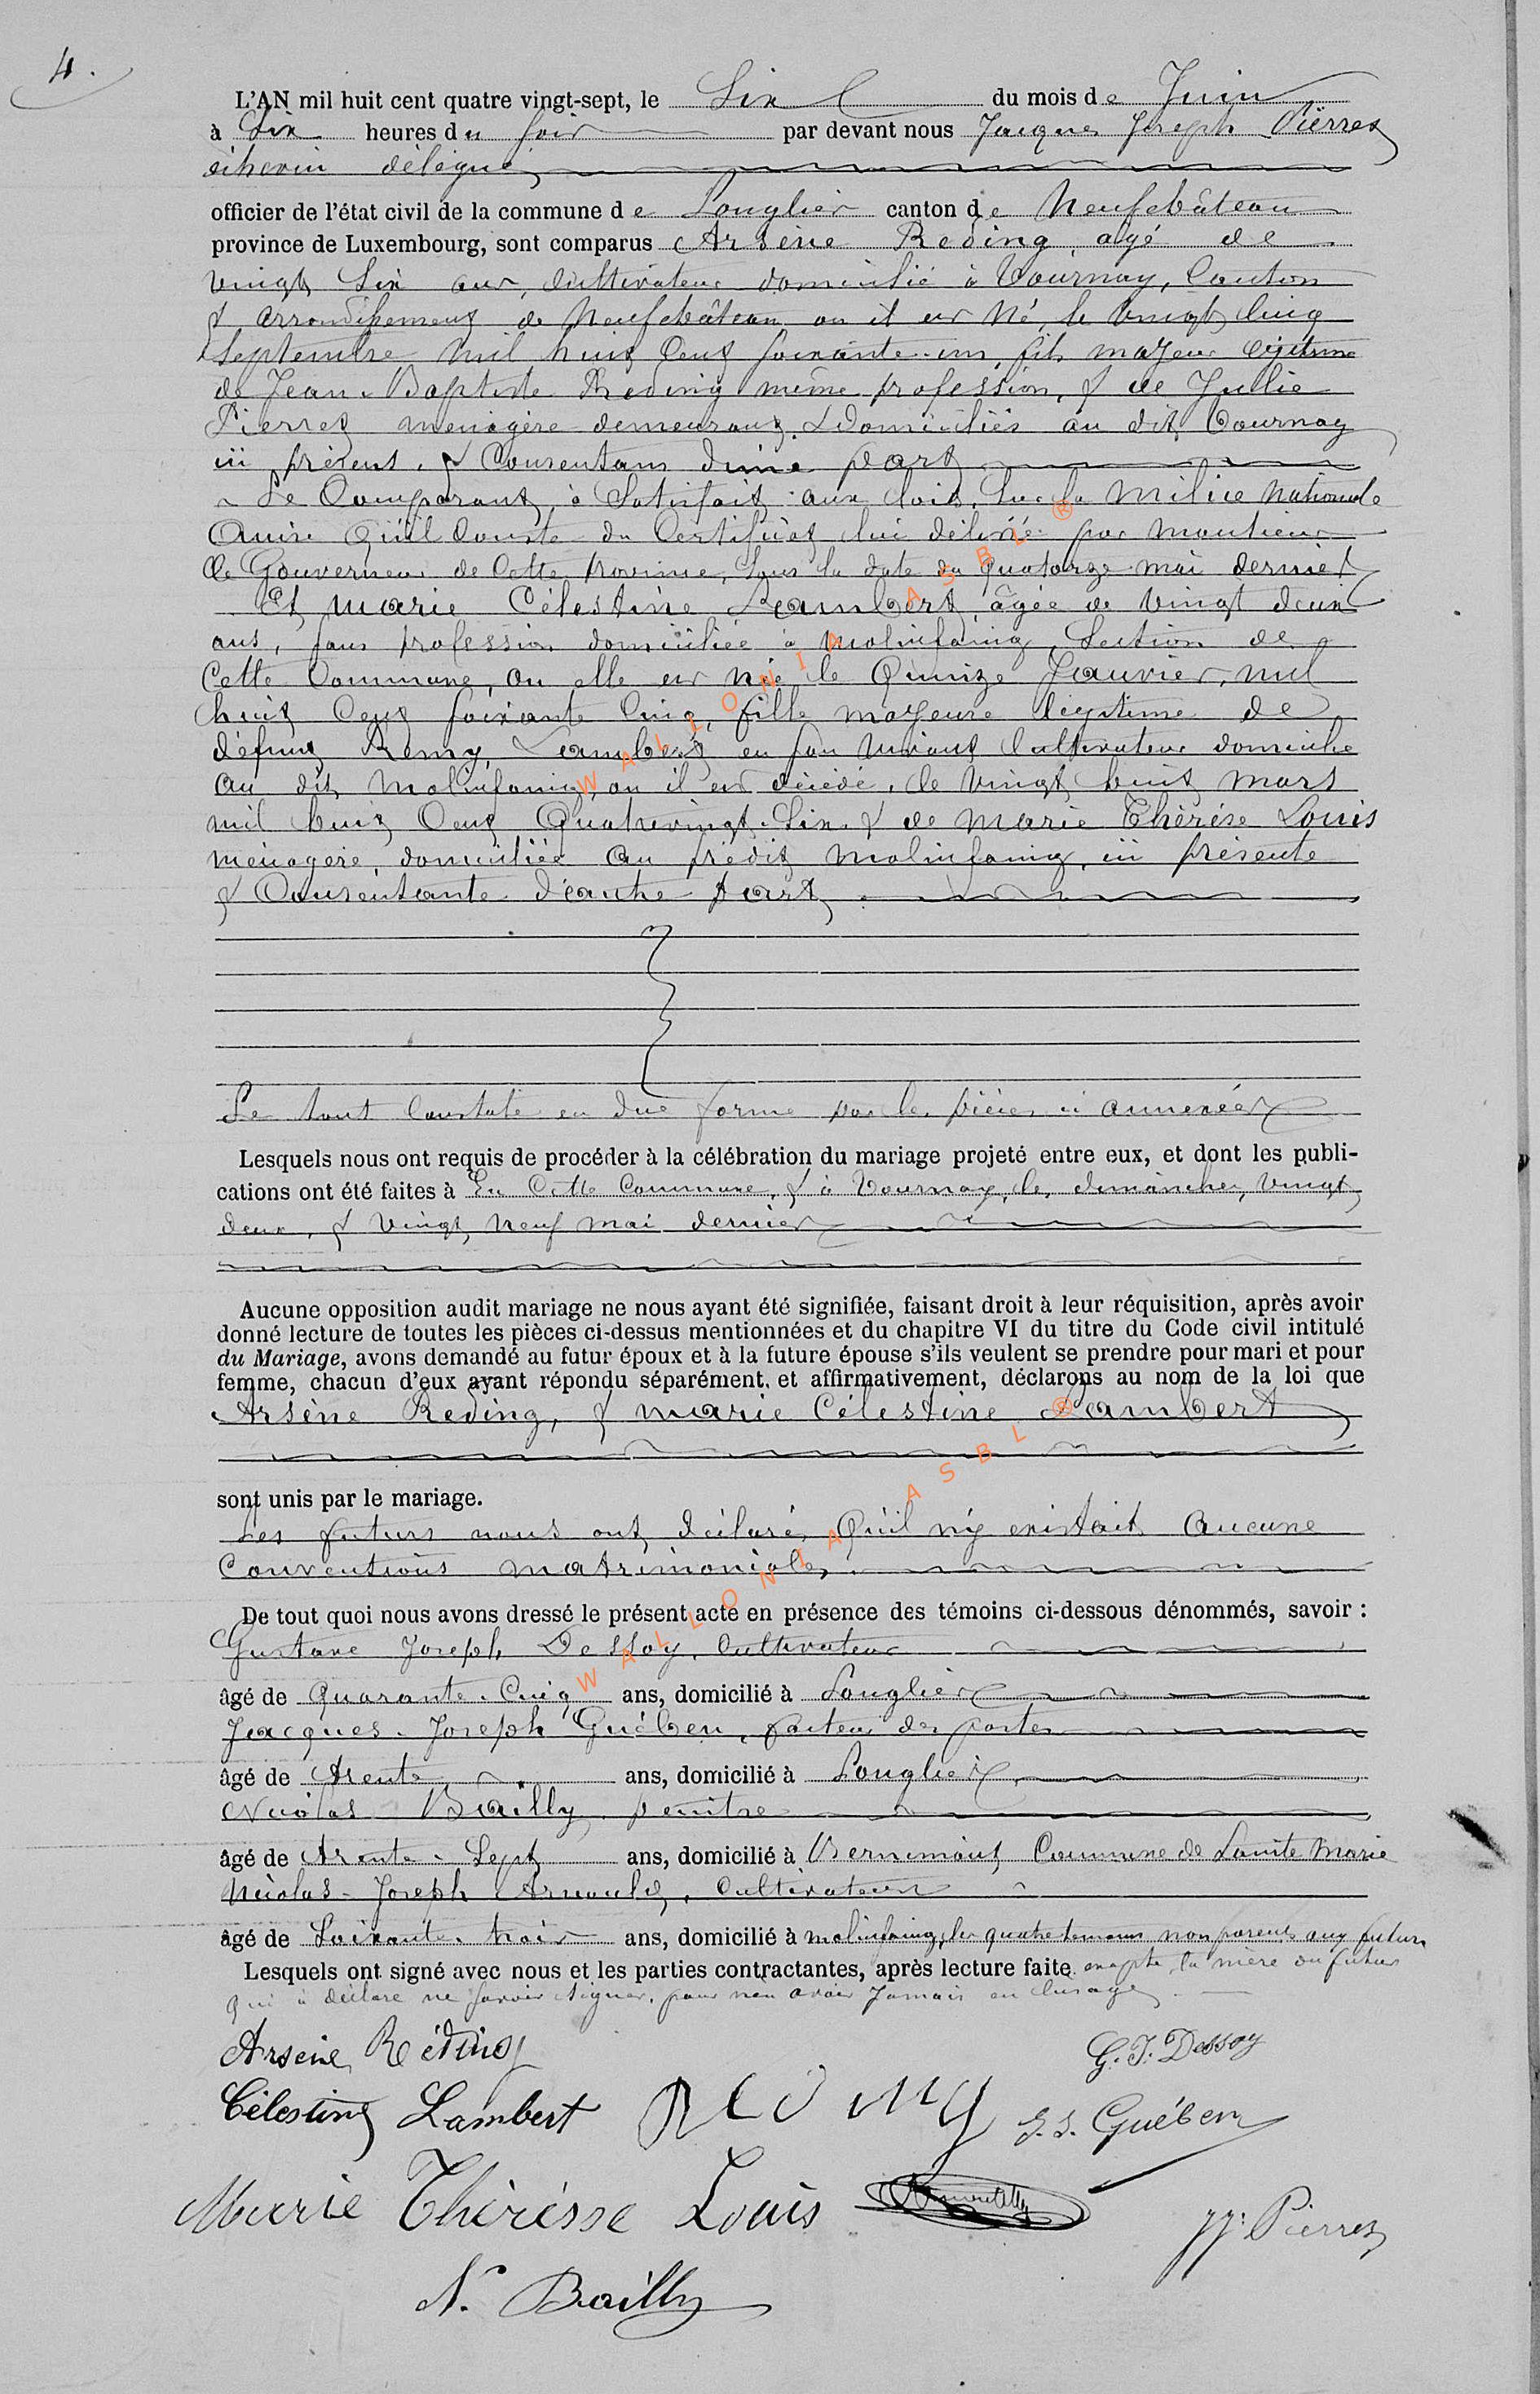 4.
L'AN mil huit cent quatre vingt-sept, le Six du mois de Juin
à Six heures du soir par devant nous Jacques Joseph Pierres
échevin délégué
officier de l'état civil de la commune de Longlier canton de Neufchâteau
province de Luxembourg, sont comparus Arsène Reding agé de
vingt six ans, Cultivateur domicilié à Tournay, Canton
& arrondissement de Neufchâteau où il est né, le vingt cinq
Septembre mil huit Cent soixante un, fils majeur légitime
de Jean-Baptiste Reding même profession, & de Julie
Pierret ménagère demeurant & domiciliés au dit Tournay
ici présens, & Consentans d'une part
Le Comparant à Satisfait aux lois sur la Milice Nationale
Ainsi Qu'il Conste du Certificat lui délivré par Monsieur
le Gouverneur de Cette Province, sous la date du Quatorze mai dernier
Et Marie Célestine Lambert âgée de vingt deux
ans, sans profession domiciliée à Molinfaing, Section de
Cette Commune, où elle est née le Quinze Janvier, mil
huit Cent soixante Cinq, fille majeure légitime de
défunt Remy Lambert en son vivant Cultivateur domicilié
au dit Molinfaing, où il est décédé, le vingt huit mars
mil huit Cent Quatrevingt-Six & de Marie Thérèse Louis
ménagère domiciliée au prédit Molinfaing, ici présente
& Consentante d'autre part
Le tout Constaté en due forme par les pièces ci annexées
Lesquels nous ont requis de procéder à la célébration du mariage projeté entre eux, et dont les publi-
cations ont été faites à En Cette Commune, & à Tournay, les dimanches, vingt
deux, & vingt neuf mai dernier
Aucune opposition audit mariage ne nous ayant été signifiée, faisant droit à leur réquisition, après avoir
donné lecture de toutes les pièces ci-dessus mentionnées et du chapitre VI du titre du Code civil intitulé
du Mariage, avons demandé au futur époux et à la future épouse s'ils veulent se prendre pour mari et pour
femme, chacun d'eux ayant répondu séparément, et affirmativement, déclarons au nom de la loi que
Arsène Reding, & Marie Célestine Lambert
sont unis par le mariage.
Les futurs nous ont déclaré, Qu'il n'y existait Aucune
Conventions matrimoniales
De tout quoi nous avons dressé le présent acte en présence des témoins ci-dessous dénommés, savoir :
Gustave Joseph Dessoy, Cultivateur
âgé de Quarante-Cinq ans, domicilié à Longlier
Jacques-Joseph Guében, facteur des postes
âgé de trente ans, domicilié à Longlier
Nicolas Bailly peintre
âgé de trente-Sept ans, domicilié à Bernimont Commune de Sainte Marie
Nicolas-Joseph Arnould, Cultivateur
âgé de Soixante-trois ans, domicilié à Molinfaing, les quatre temoins non parents aux futurs
Lesquels ont signé avec nous et les parties contractantes, après lecture faite excepté la mère du futur
qui à déclaré ne savoir signer, pour n'en avoir Jamais eu l'usage
Arsène Réding
G. J. Dessoy
Célestine Lambert Remy
J. J. Guében
Marie Thérèsse Louis
JJ: Pierres
N. Bailly
WALLONIA ASBL ®
WALLONIA ASBL ®